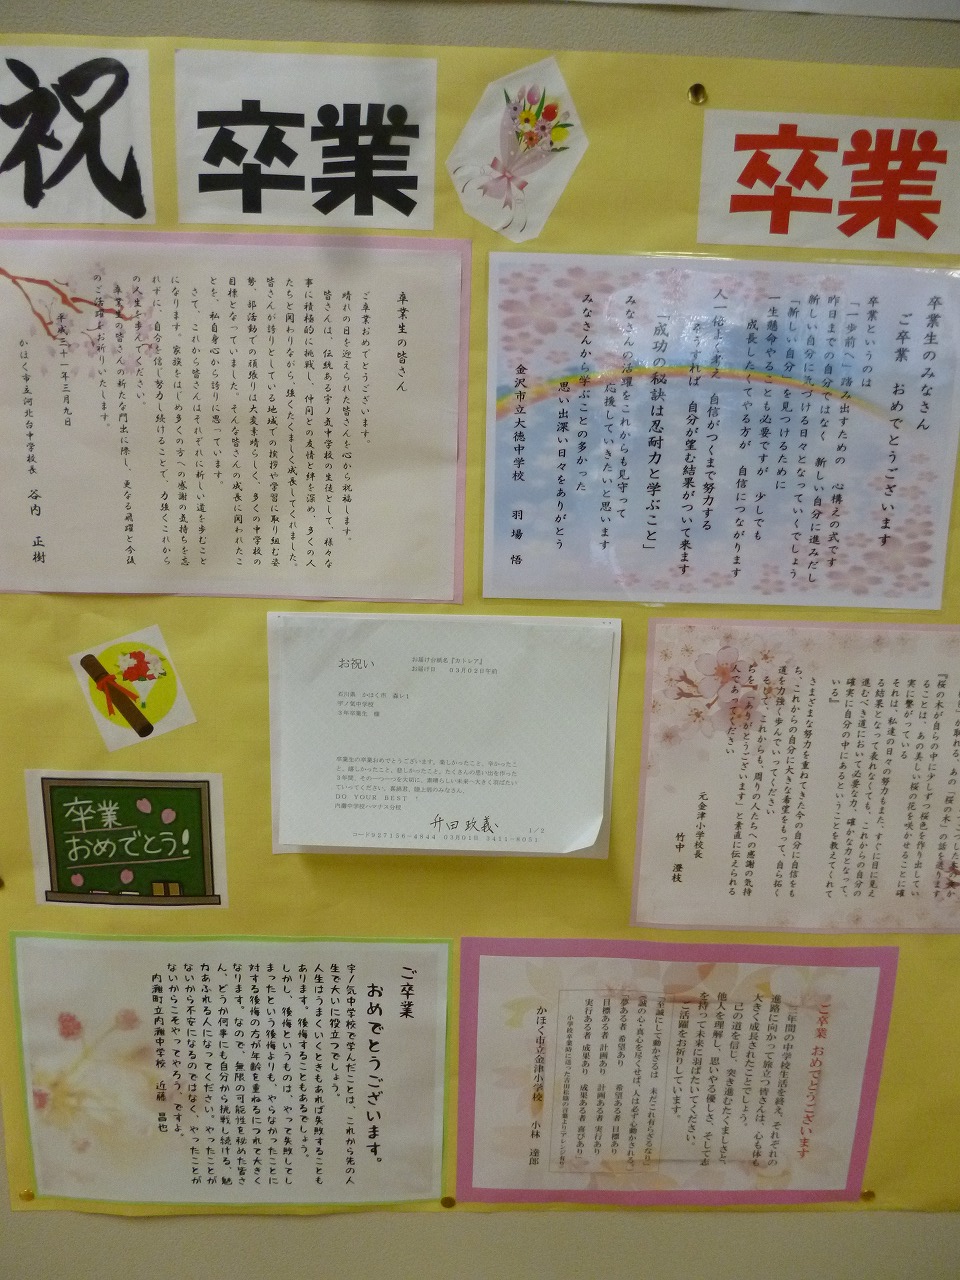 祝
卒業
卒業
卒業生の皆さん
ご卒業おめでとうございます。
晴れの日を迎えられた皆さんを心から祝福します。
皆さんは、伝統ある宇ノ気中学校の生徒として、様々な
事に積極的に挑戦し、仲間との友情と絆を深め、多くの人
たちと関わりながら、強くたくましく成長してくれました。
皆さんが誇りとしている地域での挨拶や学習に取り組む姿
勢、部活動での頑張りは大変素晴らしく、多くの中学校の
目標となっていました。そんな皆さんの成長に関われたこ
とを、私自身心から誇りに思っています。
さて、これから皆さんはそれぞれに新しい道を歩むこと
になります。家族をはじめ多くの方への感謝の気持ちを忘
れずに、自分を信じ努力し続けることで、力強くこれから
の人生を歩んでください。
卒業生の皆さんの新たな門出に際し、更なる飛躍と今後
のご活躍をお祈りいたします。
平成三十一年三月九日
かほく市立河北台中学校長 谷内 正樹
卒業生のみなさん
ご卒業 おめでとうございます
卒業というのは
「一歩前へ」踏み出すための 心構えの式です
昨日までの自分ではなく 新しい自分に進みだし
新しい自分に気づける日々となっていくでしょう
「新しい自分」を見つけるために
一生懸命やることも必要ですが 少しでも
成長したくてやる方が 自信につながります
人一倍よく考え 自信がつくまで努力する
そうすれば 自分が望む結果がついて来ます
「成功の秘訣は忍耐力と学ぶこと」
みなさんの活躍をこれからも見守って
応援していきたいと思います
みなさんから学ぶことの多かった
思い出深い日々をありがとう
金沢市立大徳中学校 羽場 悟
お祝い
お届け台紙名『カトレア』
お届け日 03月02日午前
石川県 かほく市 森レ1
宇ノ気中学校
3年卒業生 様
卒業生の卒業おめでとうございます。楽しかったこと、辛かったこ
と、嬉しかったこと、悲しかったこと、たくさんの思い出を作った
3年間、その一つ一つを大切に、素晴らしい未来へ大きく羽ばたい
ていってください。
DO YOUR BEST !
内灘中学校ハマナス分校
舛田 政義
1/2
『桜の木が自らの中に少しずつ桜色を作り出してい
ることは、あの美しい桜の花を咲かせることに確
実に繋がっている
それは、私達の日々の努力もまた、すぐに目に見え
る結果となって表れなくても、これからの自分の
進むべき道において必要な力、確かな力となって、
確実に自分の中にあるということを教えてくれて
いる』
さまざまな努力を重ねてきた今の自分に自信をも
ち、これからの自分に大きな希望をもって、自ら拓く
道を力強く歩んでいってください
そして、これからも、周りの人たちへの感謝の気持
ちを「ありがとうございます」と素直に伝えられる
人であってください
元金津小学校長
竹中 澄枝
卒業
おめでとう!
ご卒業
おめでとうございます。
宇ノ気中学校で学んだことは、これから先の人
生で大いに役立つでしょう。
人生はうまくいくときもあれば失敗することも
あります。後悔することもあるでしょう。
しかし、後悔というものは、やって失敗してし
まったという後悔よりも、やらなかったことに
対する後悔の方が年齢を重ねるにつれて大きく
なります。なので、無限の可能性を秘めた皆さ
ん、どうか何事にも自分から挑戦し続ける、魅
力あふれる人になってください。やったことが
ないから不安になるのではなく、やったことが
ないからこそやってやろう、ですよ。
内灘町立内灘中学校 近藤 昌也
ご卒業 おめでとうございます
三年間の中学校生活を終え、それぞれの
進路に向かって旅立つ皆さんは、心も体も
大きく成長されたことでしょう。
己の道を信じ、突き進むたくましさと、
他人を理解し、思いやる優しさ、そして志
を持って未来に羽ばたいてください。
ご活躍をお祈りしています。
「至誠にして動かざるは 未だこれ有らざるなり」
（誠の心・真心を尽くせば、人は必ず心動かされる。）
夢ある者 希望あり 希望ある者 目標あり
目標ある者 計画あり 計画ある者 実行あり
実行ある者 成果あり 成果ある者 喜びあり」
かほく市立金津小学校 小林 達郎